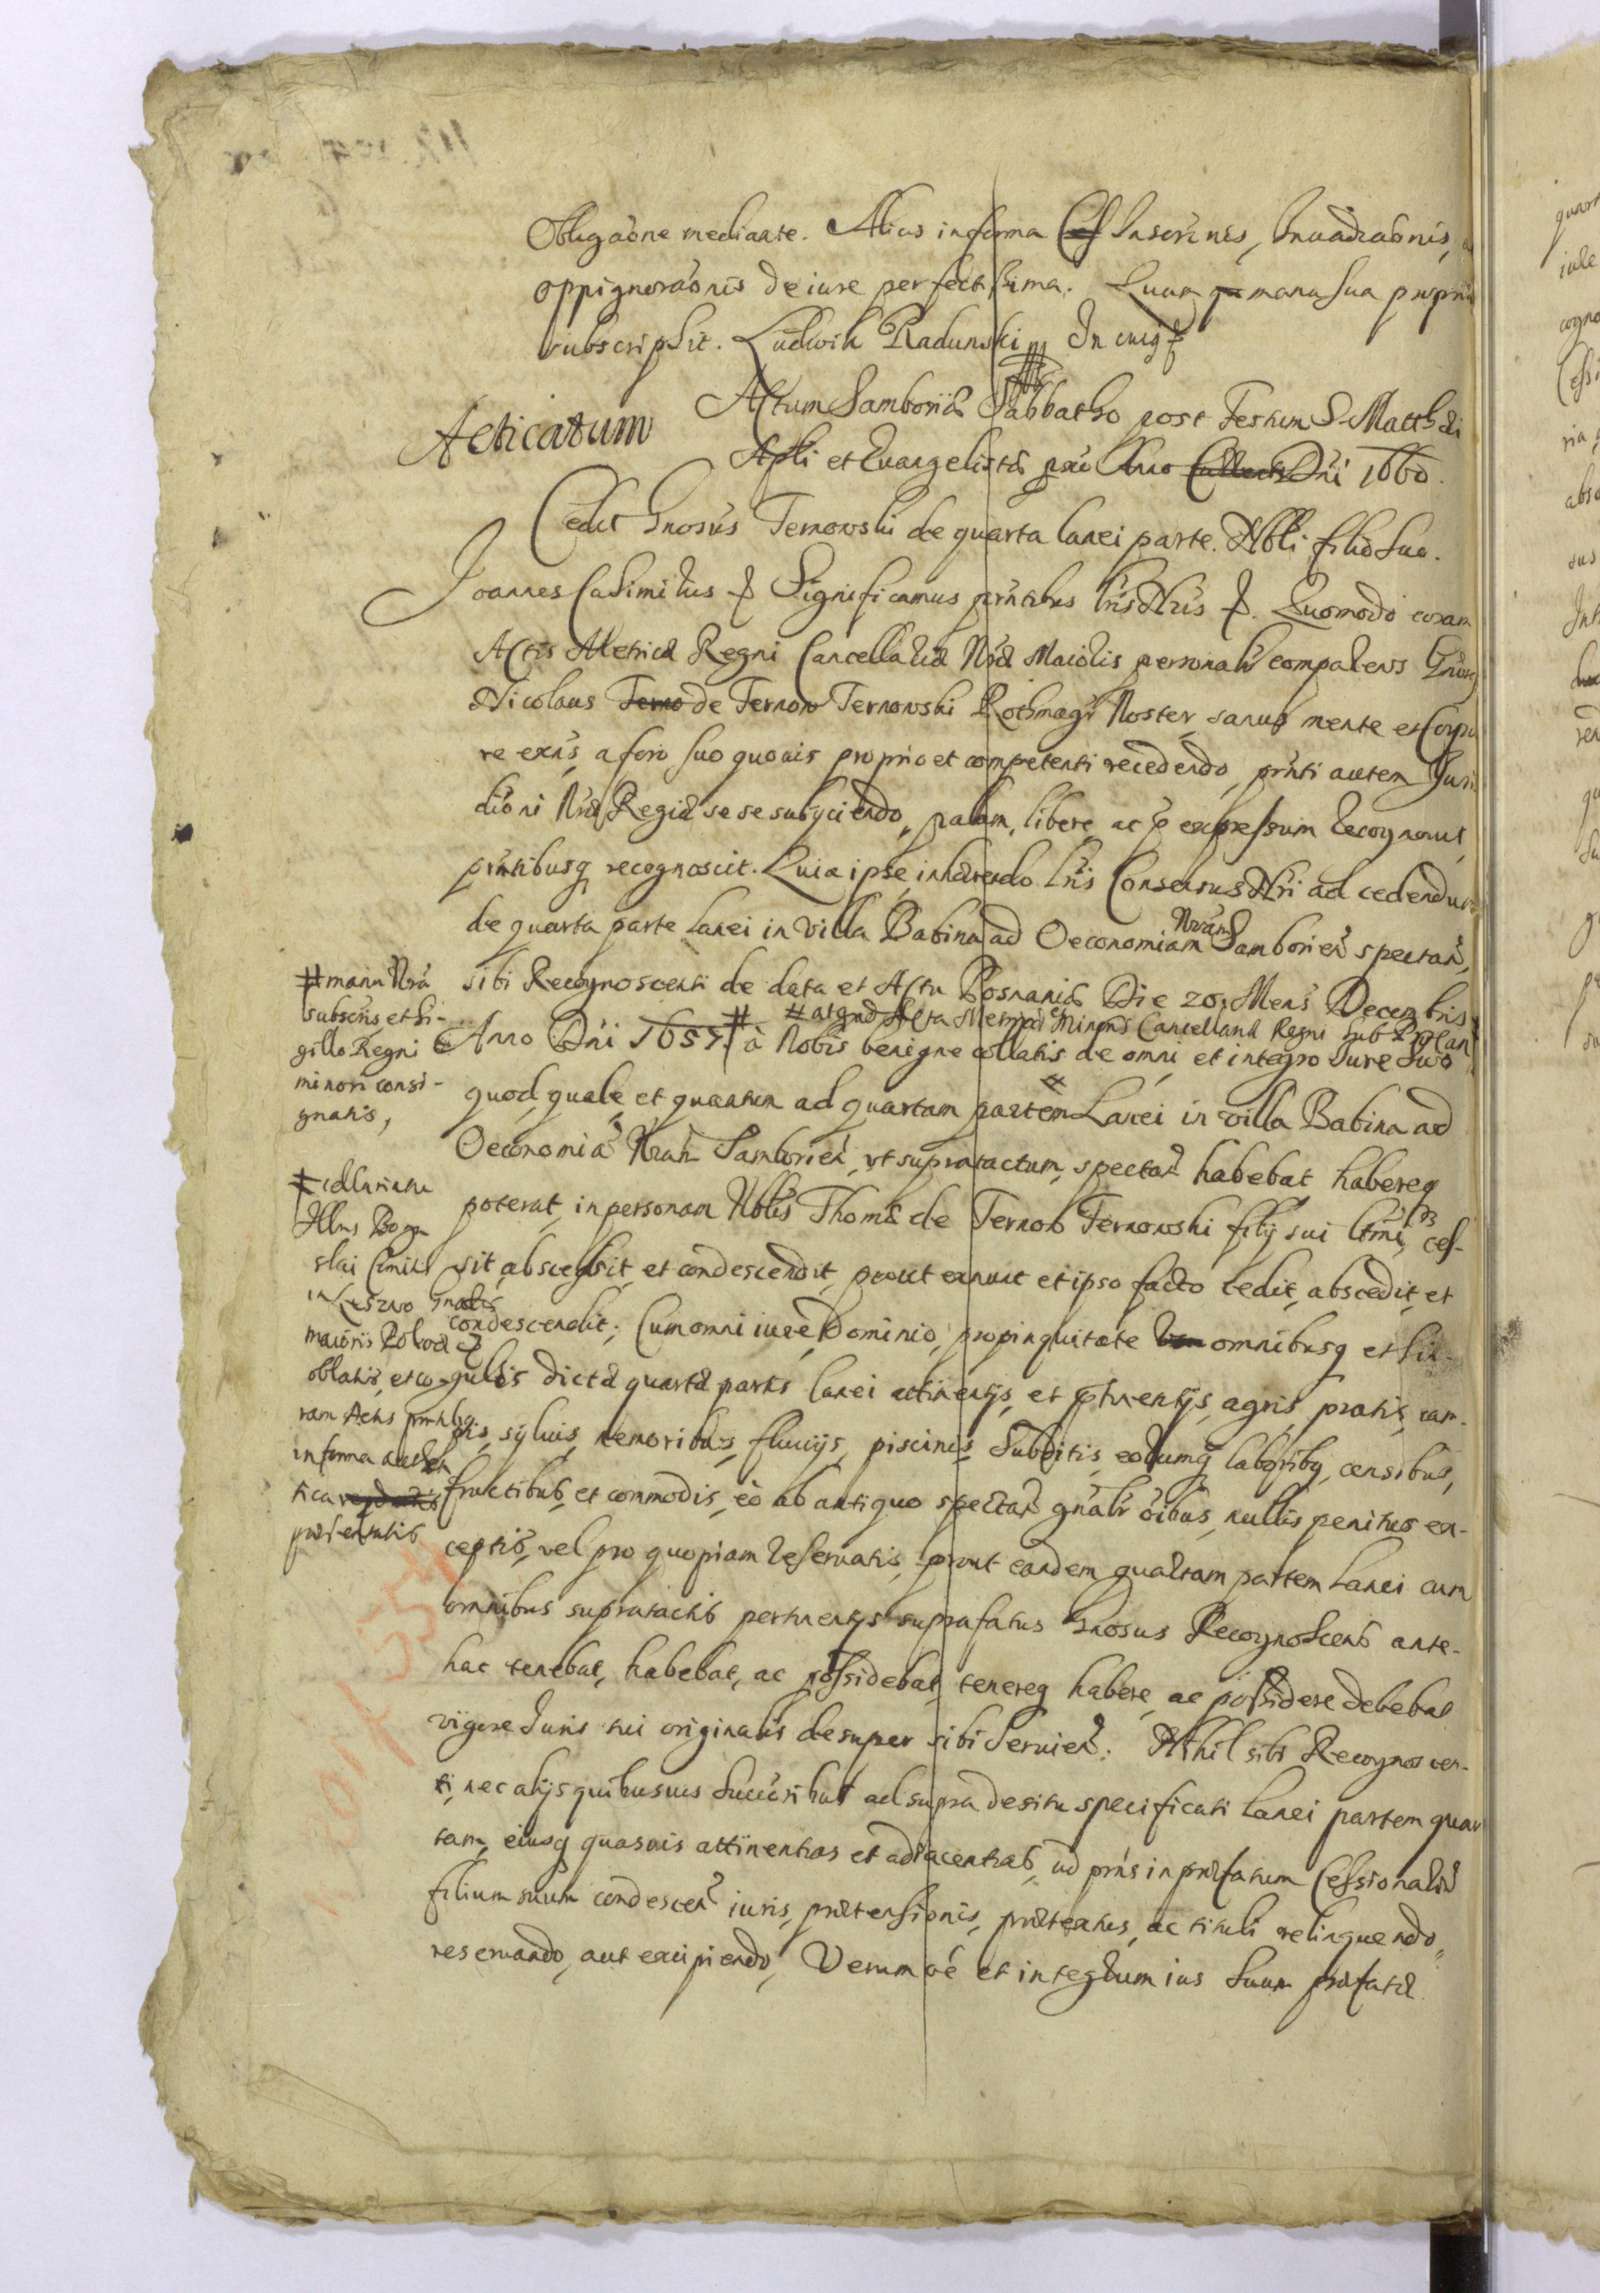 Obligaône mediante. Alias in forma Inscriñis, Inuadiaônis,
oppignoraônis de iure perfectissima. Quam manu sua propria
subscripsit. Ludwik Radunski In cuius
Actum Samboriæ Sabbatho post Festum S. Matthæi
Acticatum
Apli et Euangelistæ Anno Dñi 1660.
Cedit Gnosus Ternowski de quarta lanei parte Nbli filio suo.
Joannes Casimirus Significamus pñtibus lris Nris. Quomodo coram
Actis Metricæ Regni Cancellariæ Nræ Maioris personalr comparens Gnosus
Nicolaus Terno de Ternow Ternowski Rothmagr Noster, sanus mente et Corpo
re exñs, a foro suo quouis proprio et competenti recedendo, pñti autem Juris
dioni Nræ Regiæ se se subijciendo, palam, libere ac p expressum recognouit,
pñtibusq recognoscit. Quia ipse inhærendo lris Consensus Nri ad cedendum
de quarta parte lanei in villa Babina ad Oeconomiam Nram Samborien spectan,
sibi Recognoscenti de data et Actu Posnaniæ Die 20 Mens Decembris
# # atque Acta Metrices Minoris Cancellariæ Regni sub
Anno Dni 1657. à Nobis benigne collatis de omni et integro Jure suo
quod, quale, et quantum ad quartam partem Lanei in villa Babina ad
Oeconomiã Nram Samborien, vt supratactum, spectan habebat habereq
poterat, in personam Nblis Thomæ de Ternow Ternowski filij sui ltmi, ces-
sit, abscessit, et condescendit, prout et ipso facto cedit, abscedit, et
condescendit; Cum omni iure, Dominio, propinquitate omnibusq et sin-
gulis dictæ quartæ partis lanei attinentijs, et ptinentijs, agris, pratis, cam-
pis, syluis, nemoribus, fluuijs, piscinis, subditis, eorumq laboribq, censibus,
fructibus, et commodis, eò ab antiquo spectan gñalr oibus, nullis penitus ex-
ceptis, vel pro quopiam reseruatis, prout eandem quartam partem Lanei cum
omnibus supratactis pertinentijs suprafatus Gnosus Recognoscens ante-
hac tenebat, habebat, ac possidebat, tenereq habere, ac possidere debebat
vigore Juris sui originalis desuper sibi seruien. Nihil sibi Recognoscen-
ti, nec alijs quibusuis Succoribus ad supra de situ specificati lanei partem quar
tam, eiusq quasuis attinentias et adiacentias, ad prñs in præfatum Cessionariũ
filium suum condescen iuris, prætensionis, prætextus, ac tituli relinquendo,
reseruando, aut excipiendo, Verum oé et integrum ius suum præfatæ
# manu Nra
subscris et Si-
gillo Regni
minori consi-
gnatis,
Illmus Bogu
slai Comitis
in Leszno Gnalis
maioris Polon
oblatis, et co-
ram Actis pñtibq
in forma authen
tica
præsentatis